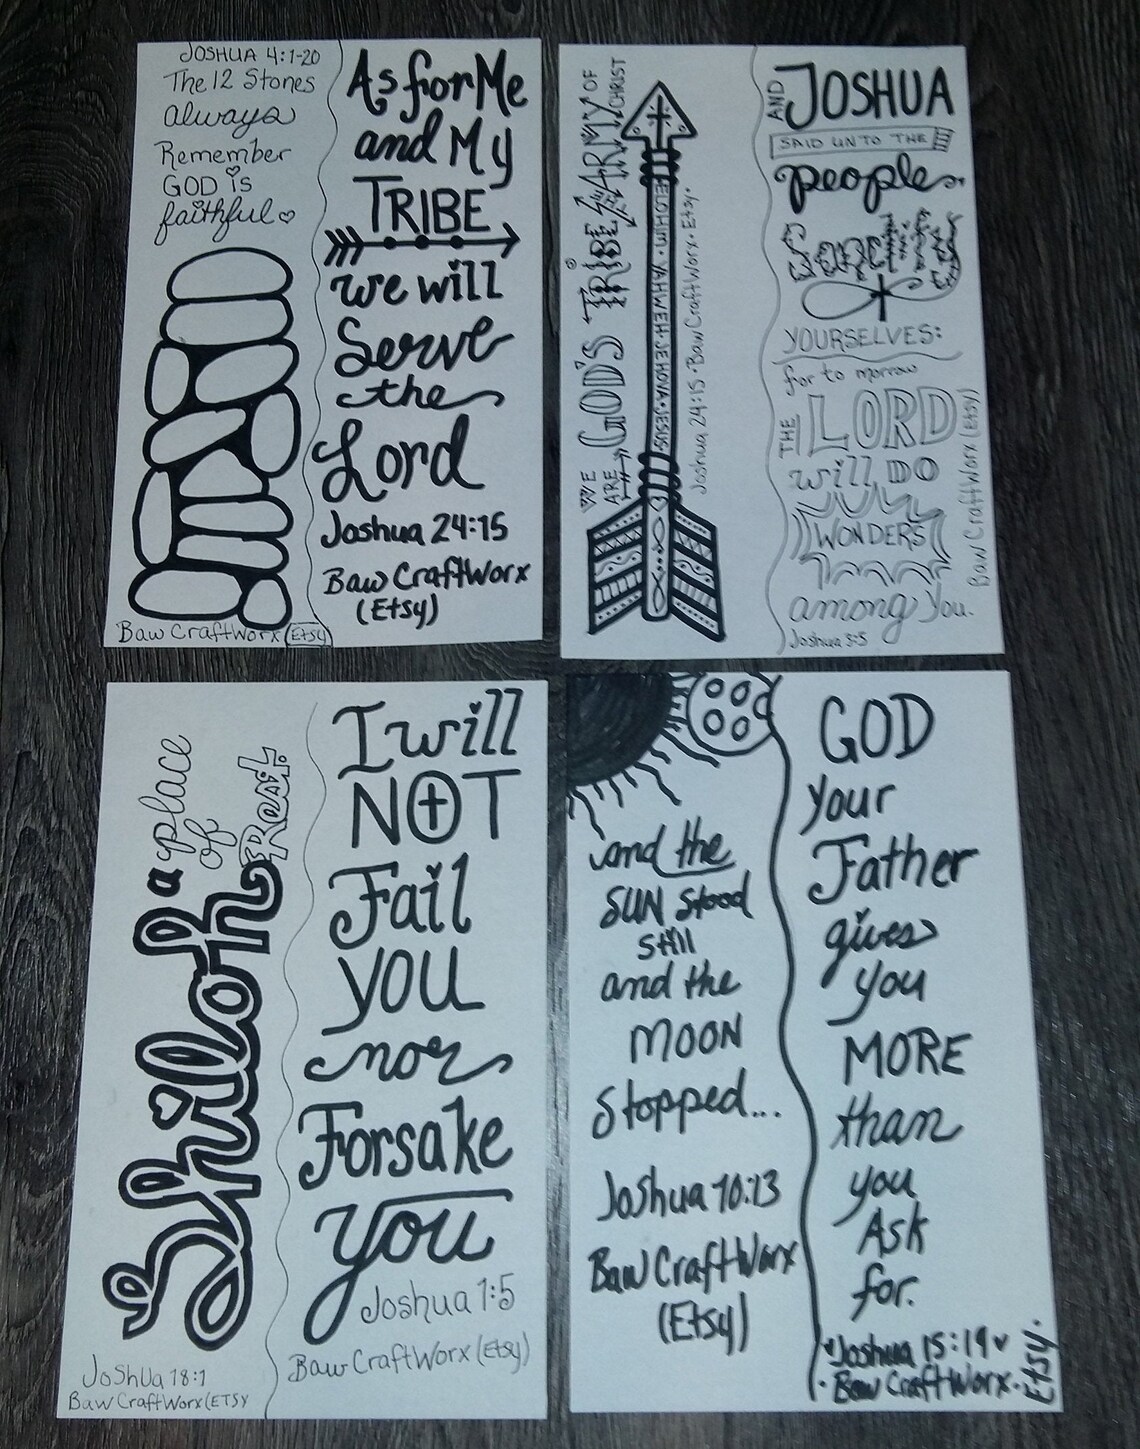 JOSHUA 4:1-20
The 12 Stones
always
Remember
GOD is
faithful
Baw CraftWorx Etsy
As for Me
and My
TRIBE
we will
Serve
the
Lord
Joshua 24:15
Baw CraftWorx
(Etsy)
WE ARE GOD'S TRIBE & ARMY OF CHRIST
ELOHIM · YAHWEH · JEHOVA · JESUS
Joshua 24:15 · Baw CraftWorx · Etsy ·
AND JOSHUA
SAID UNTO THE
people
Sanctify
YOURSELVES:
for to morrow
THE LORD
will DO
WONDERS
among you.
Joshua 3:5
Baw CraftWorx (Etsy)
Shiloh
a place
of
Rest.
Joshua 18:1
Baw CraftWorx (ETSY
I will
NOT
Fail
you
nor
Forsake
you
Joshua 1:5
Baw CraftWorx (Etsy)
and the
SUN Stood
Still
and the
MOON
Stopped...
Joshua 10:13
Baw CraftWorx
(Etsy)
GOD
your
Father
gives
you
MORE
than
you
Ask
for.
Joshua 15:19
· Baw CraftWorx · Etsy.